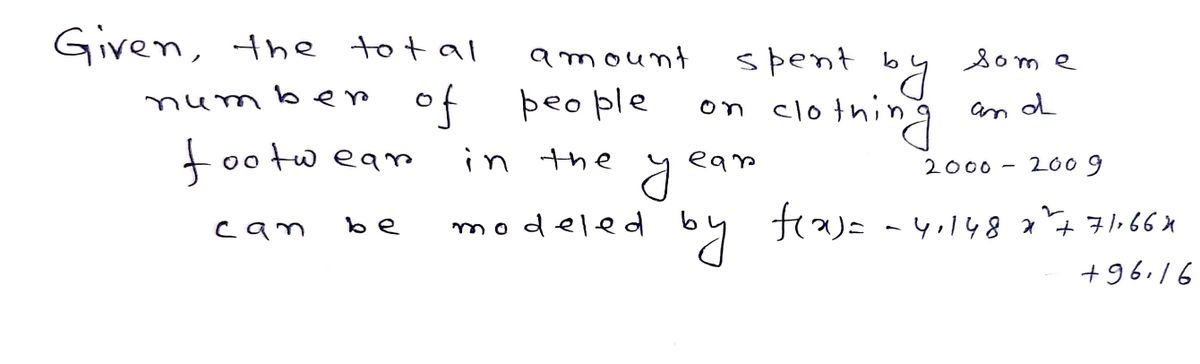 Given, the total amount spent by some
number of people on clothing and
footwear in the year 2000 - 2009
can be modeled by f(x) = - 4.148 x² + 71.66 x
+ 96.16